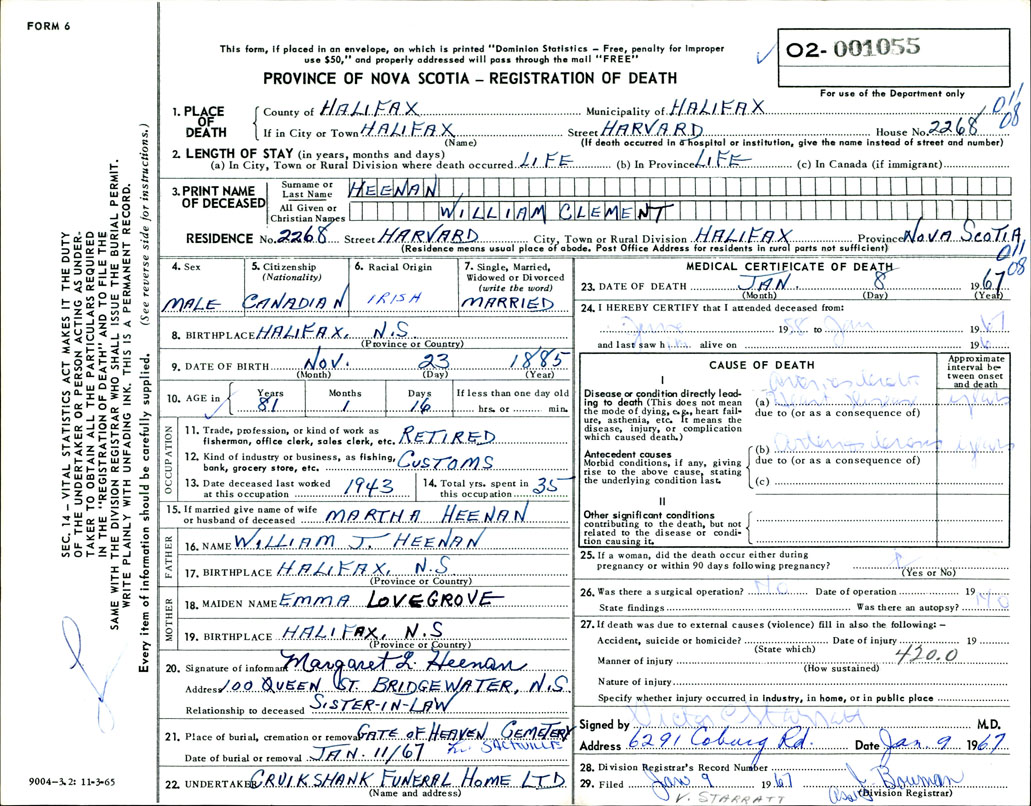 FORM 6
This form, if placed in an envelope, on which is printed "Dominion Statistics – Free, penalty for improper
use $50," and properly addressed will pass through the mail "FREE"
PROVINCE OF NOVA SCOTIA – REGISTRATION OF DEATH
02-001055
For use of the Department only
011
08
1. PLACE OF DEATH
County of HALIFAX Municipality of HALIFAX
If in City or Town HALIFAX Street HARVARD House No. 2268
(Name) (If death occurred in a hospital or institution, give the name instead of street and number)
2. LENGTH OF STAY (in years, months and days)
(a) In City, Town or Rural Division where death occurred LIFE (b) In Province LIFE (c) In Canada (if immigrant)
3. PRINT NAME OF DECEASED
Surname or Last Name HEENAN
All Given or Christian Names WILLIAM CLEMENT
RESIDENCE No. 2268 Street HARVARD City, Town or Rural Division HALIFAX Province NOVA SCOTIA
(Residence means usual place of abode. Post Office Address for residents in rural parts not sufficient)
011
08
4. Sex
MALE
5. Citizenship
(Nationality)
CANADIAN
6. Racial Origin
IRISH
7. Single, Married,
Widowed or Divorced
(write the word)
MARRIED
8. BIRTHPLACE HALIFAX, N.S
(Province or Country)
9. DATE OF BIRTH NOV. 23 1885
(Month) (Day) (Year)
10. AGE in Years Months Days If less than one day old
81 1 16 hrs. or min.
OCCUPATION
11. Trade, profession, or kind of work as
fisherman, office clerk, sales clerk, etc. RETIRED
12. Kind of industry or business, as fishing,
bank, grocery store, etc. CUSTOMS
13. Date deceased last worked
at this occupation 1943
14. Total yrs. spent in
this occupation 35
15. If married give name of wife
or husband of deceased MARTHA HEENAN
FATHER
16. NAME WILLIAM J. HEENAN
17. BIRTHPLACE HALIFAX, N.S
(Province or Country)
MOTHER
18. MAIDEN NAME EMMA LOVEGROVE
19. BIRTHPLACE HALIFAX, N.S
(Province or Country)
20. Signature of informant Margaret L. Heenan
Address 100 QUEEN ST. BRIDGEWATER, N.S.
Relationship to deceased SISTER-IN-LAW
21. Place of burial, cremation or removal GATE OF HEAVEN CEMETERY
SACKVILLE
Date of burial or removal JAN. 11/67
22. UNDERTAKER CRUIKSHANK FUNERAL HOME LTD
(Name and address)
MEDICAL CERTIFICATE OF DEATH
23. DATE OF DEATH JAN. 8 1967
(Month) (Day) (Year)
24. I HEREBY CERTIFY that I attended deceased from:
June 1958 to Jan 1967
and last saw him alive on 196
CAUSE OF DEATH
Approximate
interval be-
tween onset
and death
I
Disease or condition directly lead-
ing to death (This does not mean
the mode of dying, e.g., heart fail-
ure, asthenia, etc. It means the
disease, injury, or complication
which caused death.)
(a) heart disease years
due to (or as a consequence of)
Antecedent causes
Morbid conditions, if any, giving
rise to the above cause, stating
the underlying condition last.
(b) years
due to (or as a consequence of)
(c)
II
Other significant conditions
contributing to the death, but not
related to the disease or condi-
tion causing it.
25. If a woman, did the death occur either during
pregnancy or within 90 days following pregnancy?
(Yes or No)
26. Was there a surgical operation? NO Date of operation 19
State findings Was there an autopsy? NO
27. If death was due to external causes (violence) fill in also the following: –
Accident, suicide or homicide? Date of injury 19
(State which)
420.0
Manner of injury
(How sustained)
Nature of injury
Specify whether injury occurred in industry, in home, or in public place
Signed by Victor C Starratt M.D.
Address 6291 Coburg Rd. Date Jan. 9 1967
28. Division Registrar's Record Number
29. Filed Jan 9 1967 Bowman
(Division Registrar)
V. STARRATT
SEC. 14 – VITAL STATISTICS ACT MAKES IT THE DUTY
OF THE UNDERTAKER OR PERSON ACTING AS UNDER-
TAKER TO OBTAIN ALL THE PARTICULARS REQUIRED
IN THE "REGISTRATION OF DEATH" AND TO FILE THE
SAME WITH THE DIVISION REGISTRAR WHO SHALL ISSUE THE BURIAL PERMIT.
WRITE PLAINLY WITH UNFADING INK. THIS IS A PERMANENT RECORD.
Every item of information should be carefully supplied. (See reverse side for instructions.)
9004-3.2: 11-3-65